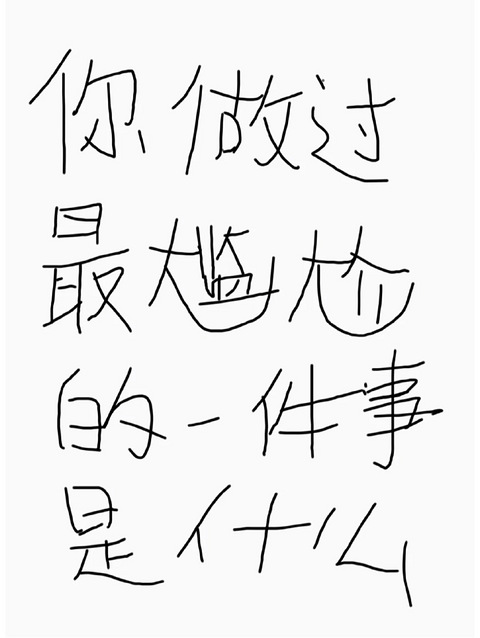 你做过
最尴尬
的一件事
是什么